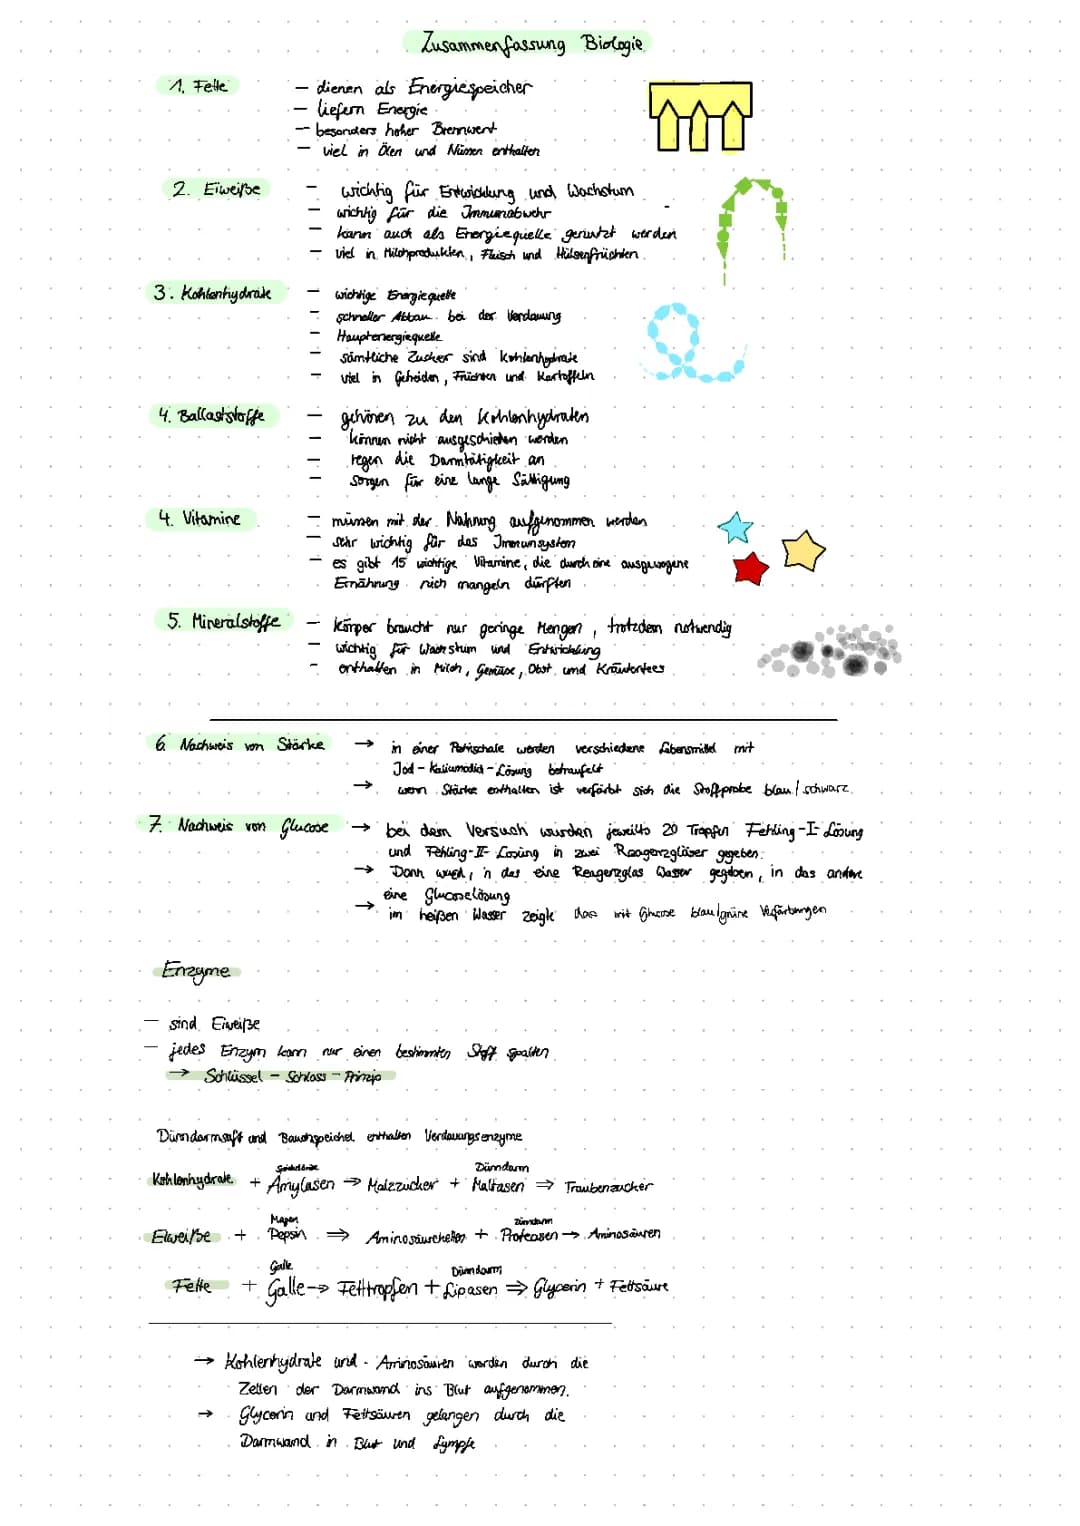 Zusammenfassung Biologie
1. Fette
– dienen als Energiespeicher
– liefern Energie
– besonders hoher Brennwert
– viel in Ölen und Nüssen enthalten
2. Eiweiße
– wichtig für Entwicklung und Wachstum
– wichtig für die Immunabwehr
– kann auch als Energiequelle genutzt werden
– viel in Milchprodukten, Fleisch und Hülsenfrüchten
3. Kohlenhydrate
– wichtige Energiequelle
– schneller Abbau bei der Verdauung
– Hauptenergiequelle
– sämtliche Zucker sind Kohlenhydrate
– viel in Getreiden, Früchten und Kartoffeln
4. Ballaststoffe
– gehören zu den Kohlenhydraten
– können nicht ausgeschieden werden
– regen die Darmtätigkeit an
– sorgen für eine lange Sättigung
4. Vitamine
– müssen mit der Nahrung aufgenommen werden
– sehr wichtig für das Immunsystem
– es gibt 15 wichtige Vitamine, die durch eine ausgewogene
Ernährung nich mangeln dürften
5. Mineralstoffe
– Körper braucht nur geringe Mengen, trotzdem notwendig
– wichtig für Wachstum und Entwicklung
– enthalten in Milch, Gemüse, Obst und Kräutertees
6. Nachweis von Stärke
→ in einer Petrischale werden verschiedene Lebensmittel mit
Jod-Kaliumodid-Lösung beträufelt
→ wenn Stärke enthalten ist verfärbt sich die Stoffprobe blau/schwarz
7. Nachweis von Glucose
→ bei dem Versuch wurden jeweils 20 Tropfen Fehling-I-Lösung
und Fehling-II-Lösung in zwei Reagenzgläser gegeben.
→ Dann wurd, in das eine Reagenzglas Wasser gegeben, in das andere
eine Glucoselösung
→ im heißen Wasser zeigte das mit Glucose blau/grüne Verfärbungen
Enzyme
– sind Eiweiße
– jedes Enzym kann nur einen bestimmten Stoff spalten
→ Schlüssel-Schloss-Prinzip
Dünndarmsaft und Bauchspeichel enthalten Verdauungsenzyme
Dünndarm
Kohlenhydrate + Amylasen → Malzzucker + Maltasen ⇒ Traubenzucker
Magen
Eiweiße + Pepsin ⇒ Aminosäureketten + Proteasen → Aminosäuren
Galle Dünndarm
Fette + Galle → Fetttropfen + Lipasen ⇒ Glycerin + Fettsäure
→ Kohlenhydrate und Aminosäuren werden durch die
Zellen der Darmwand ins Blut aufgenommen.
→ Glycerin und Fettsäuren gelangen durch die
Darmwand in Blut und Lymphe